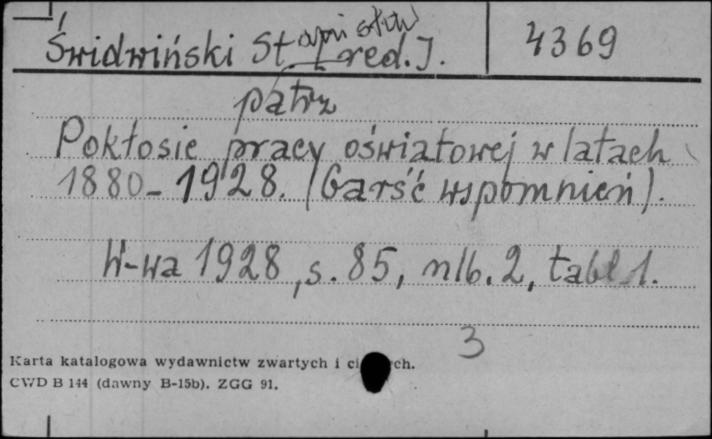 Świdwiński St. [red.].
4369
patrz
Pokłosie pracy oświatowej w latach
1880-1928. (Garść wspomnień).
W-wa 1928, s. 85, nlb. 2, tabl 1.
3
Karta katalogowa wydawnictw zwartych i ci ch.
CWD B 144 (dawny B-15b). ZGG 91.